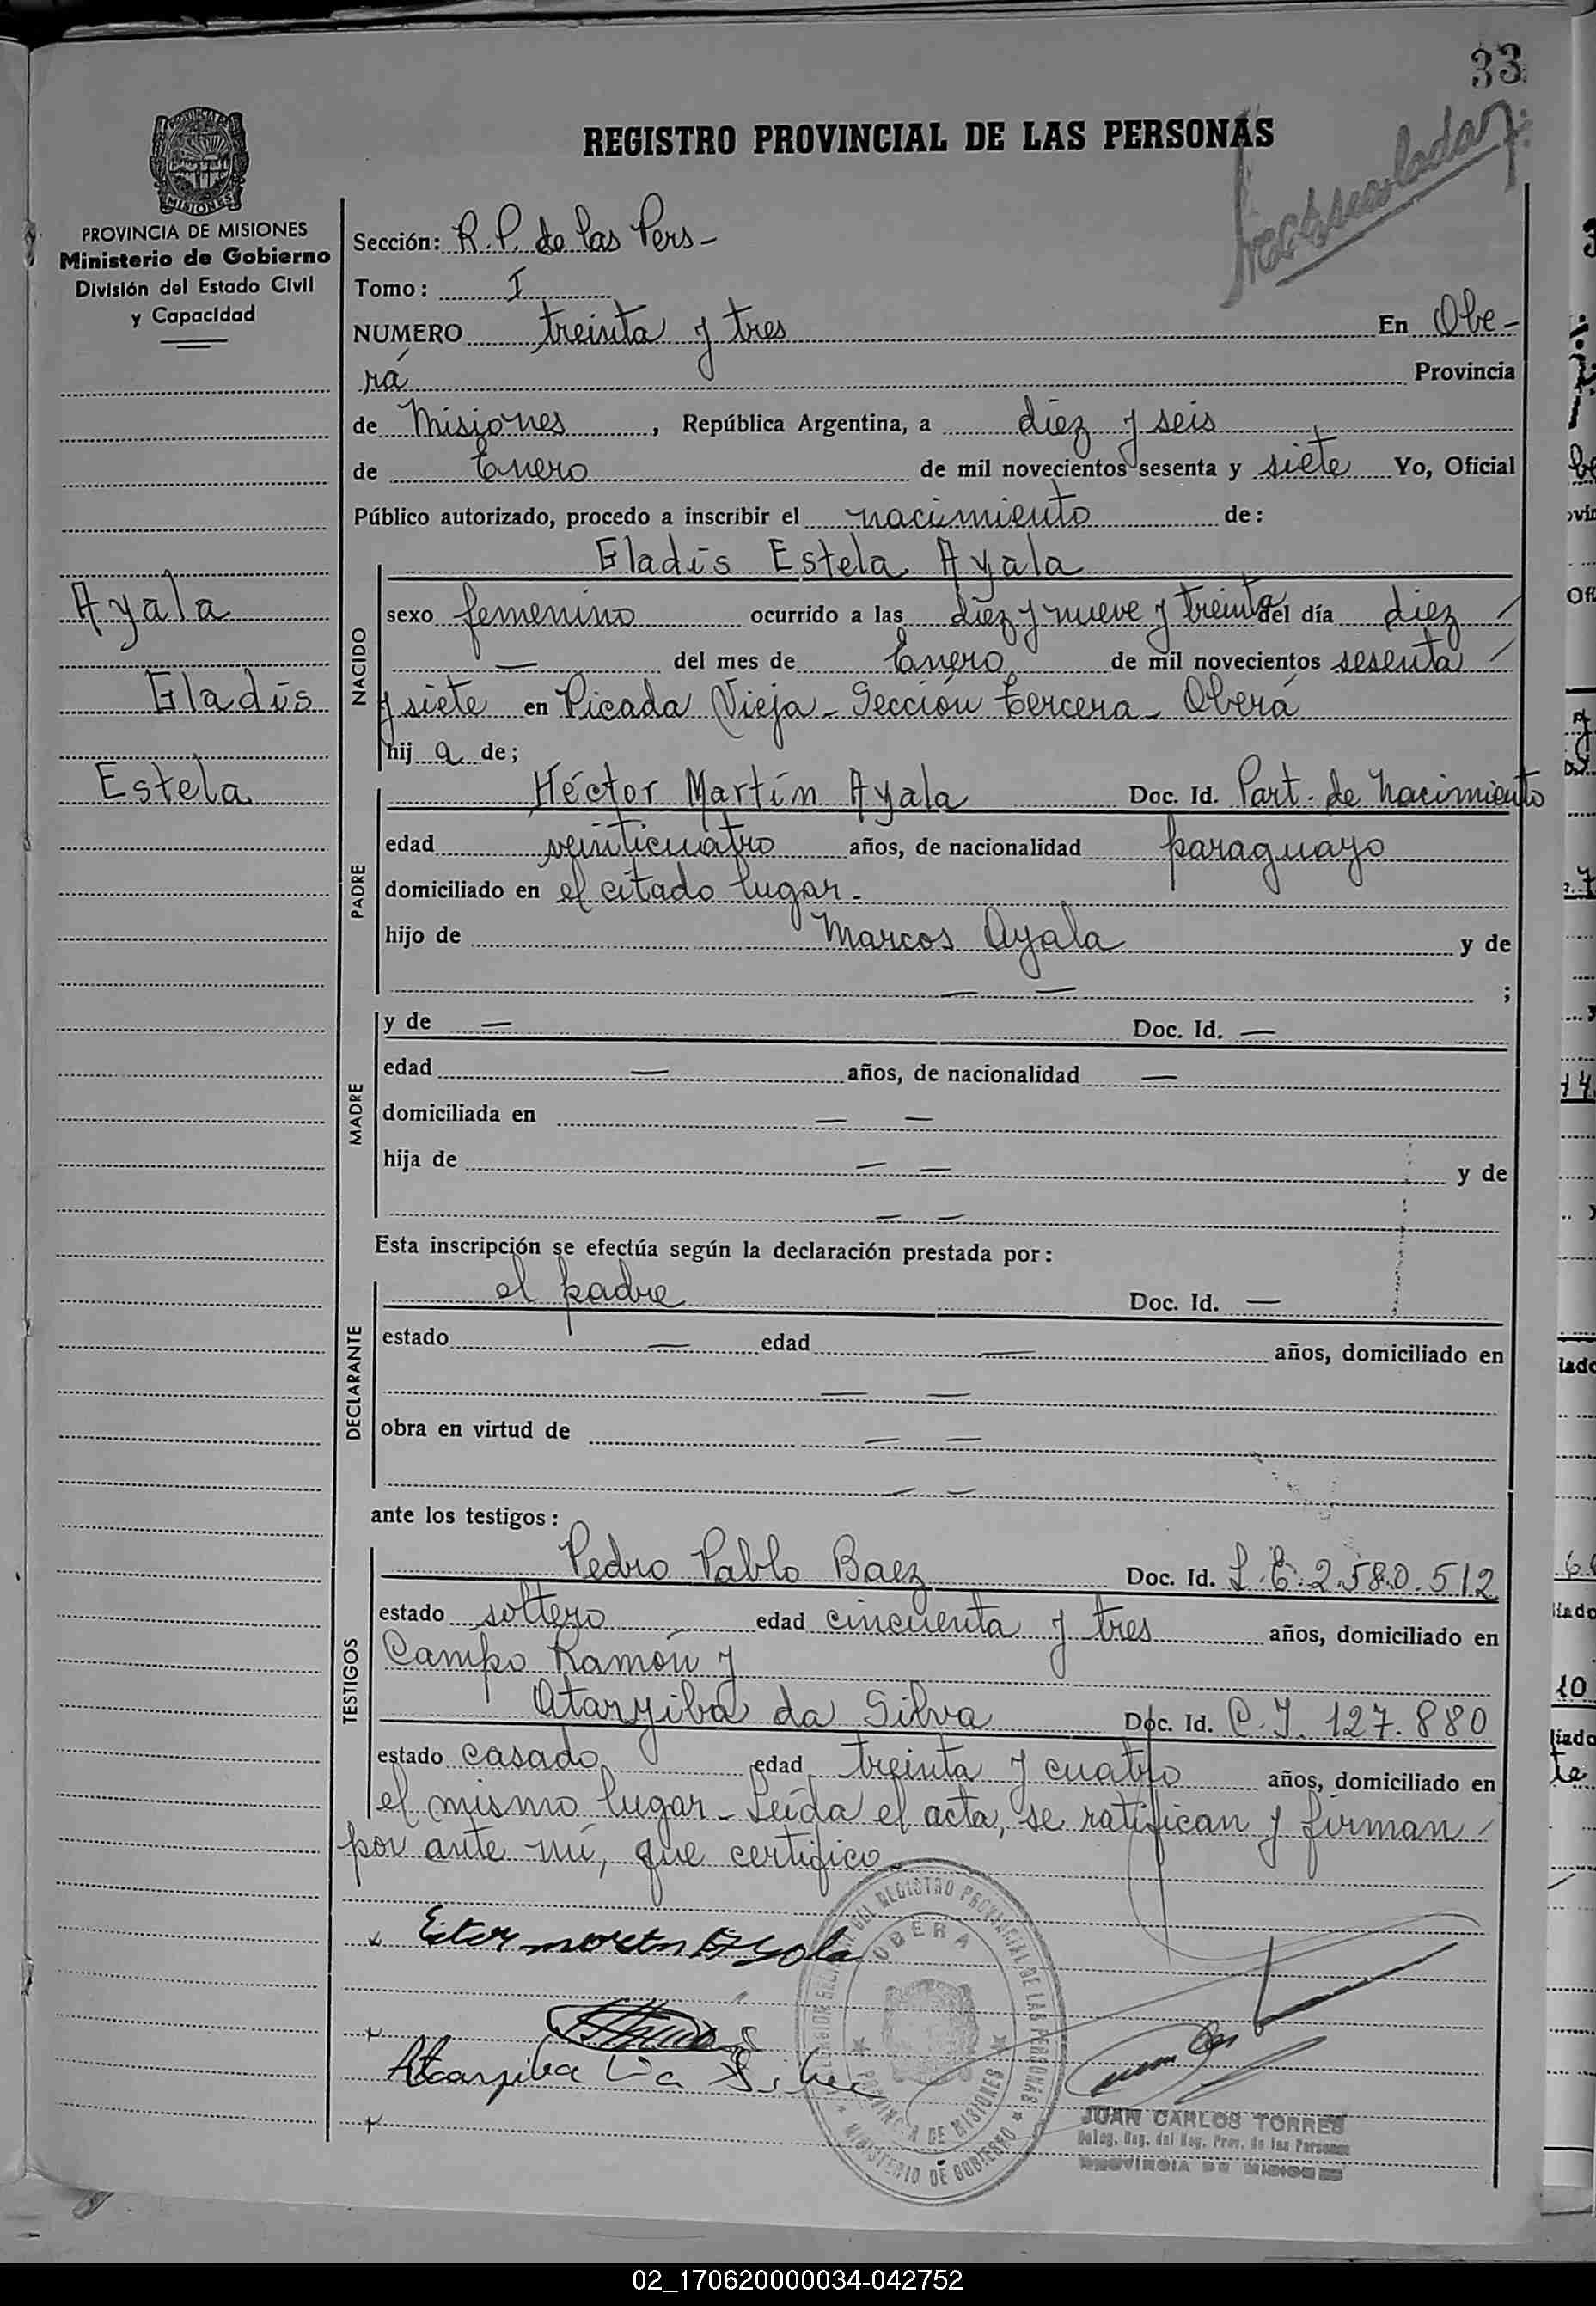 33
REGISTRO PROVINCIAL DE LAS PERSONAS
MISIONES
PROVINCIA DE MISIONES
Ministerio de Gobierno
División del Estado Civil
y Capacidad
Ayala
Gladis
Estela
Sección: R. P. de las Pers-
Tomo: I
NUMERO treinta y tres En Obe-
rá Provincia
de Misiones, República Argentina, a diez y seis
de Enero de mil novecientos sesenta y siete Yo, Oficial
Público autorizado, procedo a inscribir el nacimiento de:
NACIDO
Gladis Estela Ayala
sexo femenino ocurrido a las diez y nueve y treinta del día diez /
— del mes de Enero de mil novecientos sesenta /
y siete en Picada Vieja - Sección tercera - Oberá
hij a de;
PADRE
Héctor Martín Ayala Doc. Id. Part. de Nacimiento
edad veinticuatro años, de nacionalidad paraguayo
domiciliado en el citado lugar.
hijo de Marcos Ayala y de
— — ;
MADRE
y de — Doc. Id. —
edad — años, de nacionalidad —
domiciliada en — —
hija de — — y de
— —
Esta inscripción se efectúa según la declaración prestada por:
DECLARANTE
el padre Doc. Id. —
estado — edad — años, domiciliado en
— —
obra en virtud de — —
— —
ante los testigos:
TESTIGOS
Pedro Pablo Baez Doc. Id. L.E. 2.580.512
estado soltero edad cincuenta y tres años, domiciliado en
Campo Ramón y
Ataryiba da Silva Doc. Id. C.I. 127.880
estado casado edad treinta y cuatro años, domiciliado en
el mismo lugar - Leída el acta, se ratifican y firman /
por ante mí, que certifico.
OBERA
PROVINCIA DE MISIONES
MINISTERIO DE GOBIERNO
JUAN CARLOS TORRES
Deleg. Reg. del Reg. Prov. de las Personas
PROVINCIA DE MISIONES
02_170620000034-042752